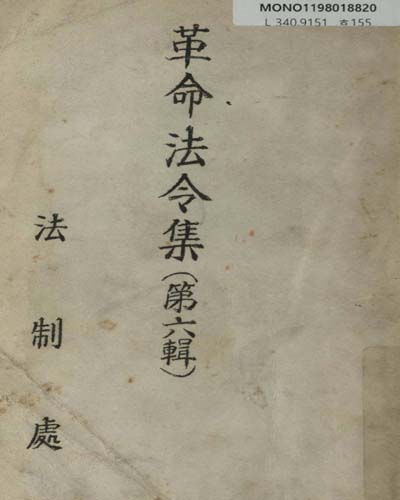 MONO1198018820
L 340.9151 ㅎ155
革命法令集(第六輯)
法制處